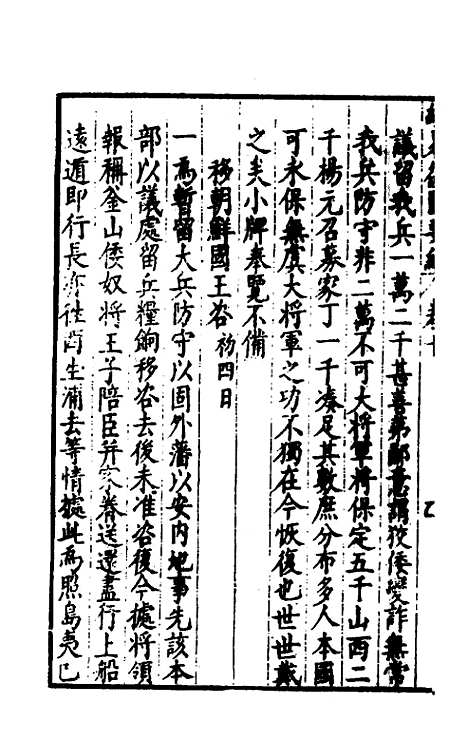 議留我兵一萬二千甚喜第鄙意謂狡倭變詐無常
我兵防守非二萬不可大將軍將保定五千山西二
千楊元召募家丁一千湊足其數庶分布多人本國
可永保無虞大將軍之功不獨在今恢復也世世戴
之矣小牌奉覽不備
移朝鮮國王咨 初四日
一為暫留大兵防守以固外藩以安內地事先該本
部以議處留兵糧餉移咨去後未准咨復今據將領
報稱釜山倭奴將王子陪臣并家眷送還盡行上船
遠遁即行長亦往西生浦去等情據此為照島夷已